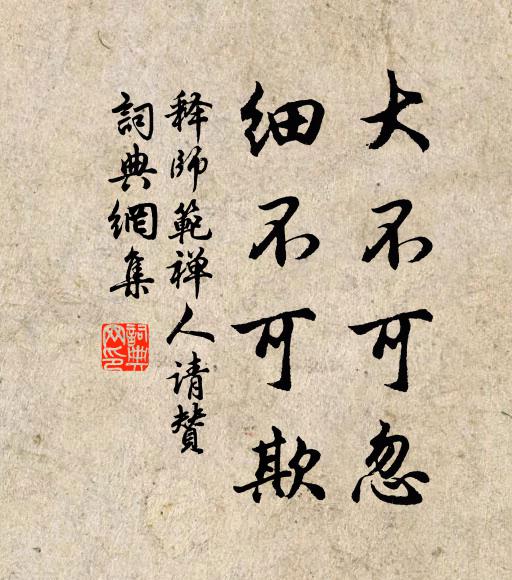 大不可忽
细不可欺
释師範禅人请贊
詞典網集
詞典网印